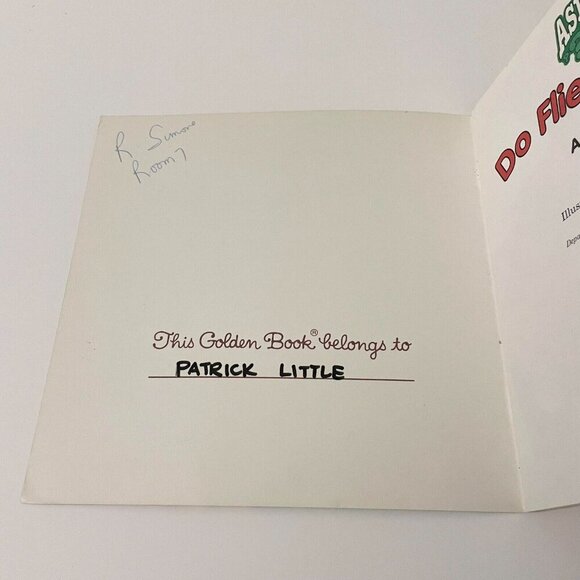 R Simone
Room 7
This Golden Book® belongs to
PATRICK LITTLE
AST
Do Flie
A
Illus
Depa